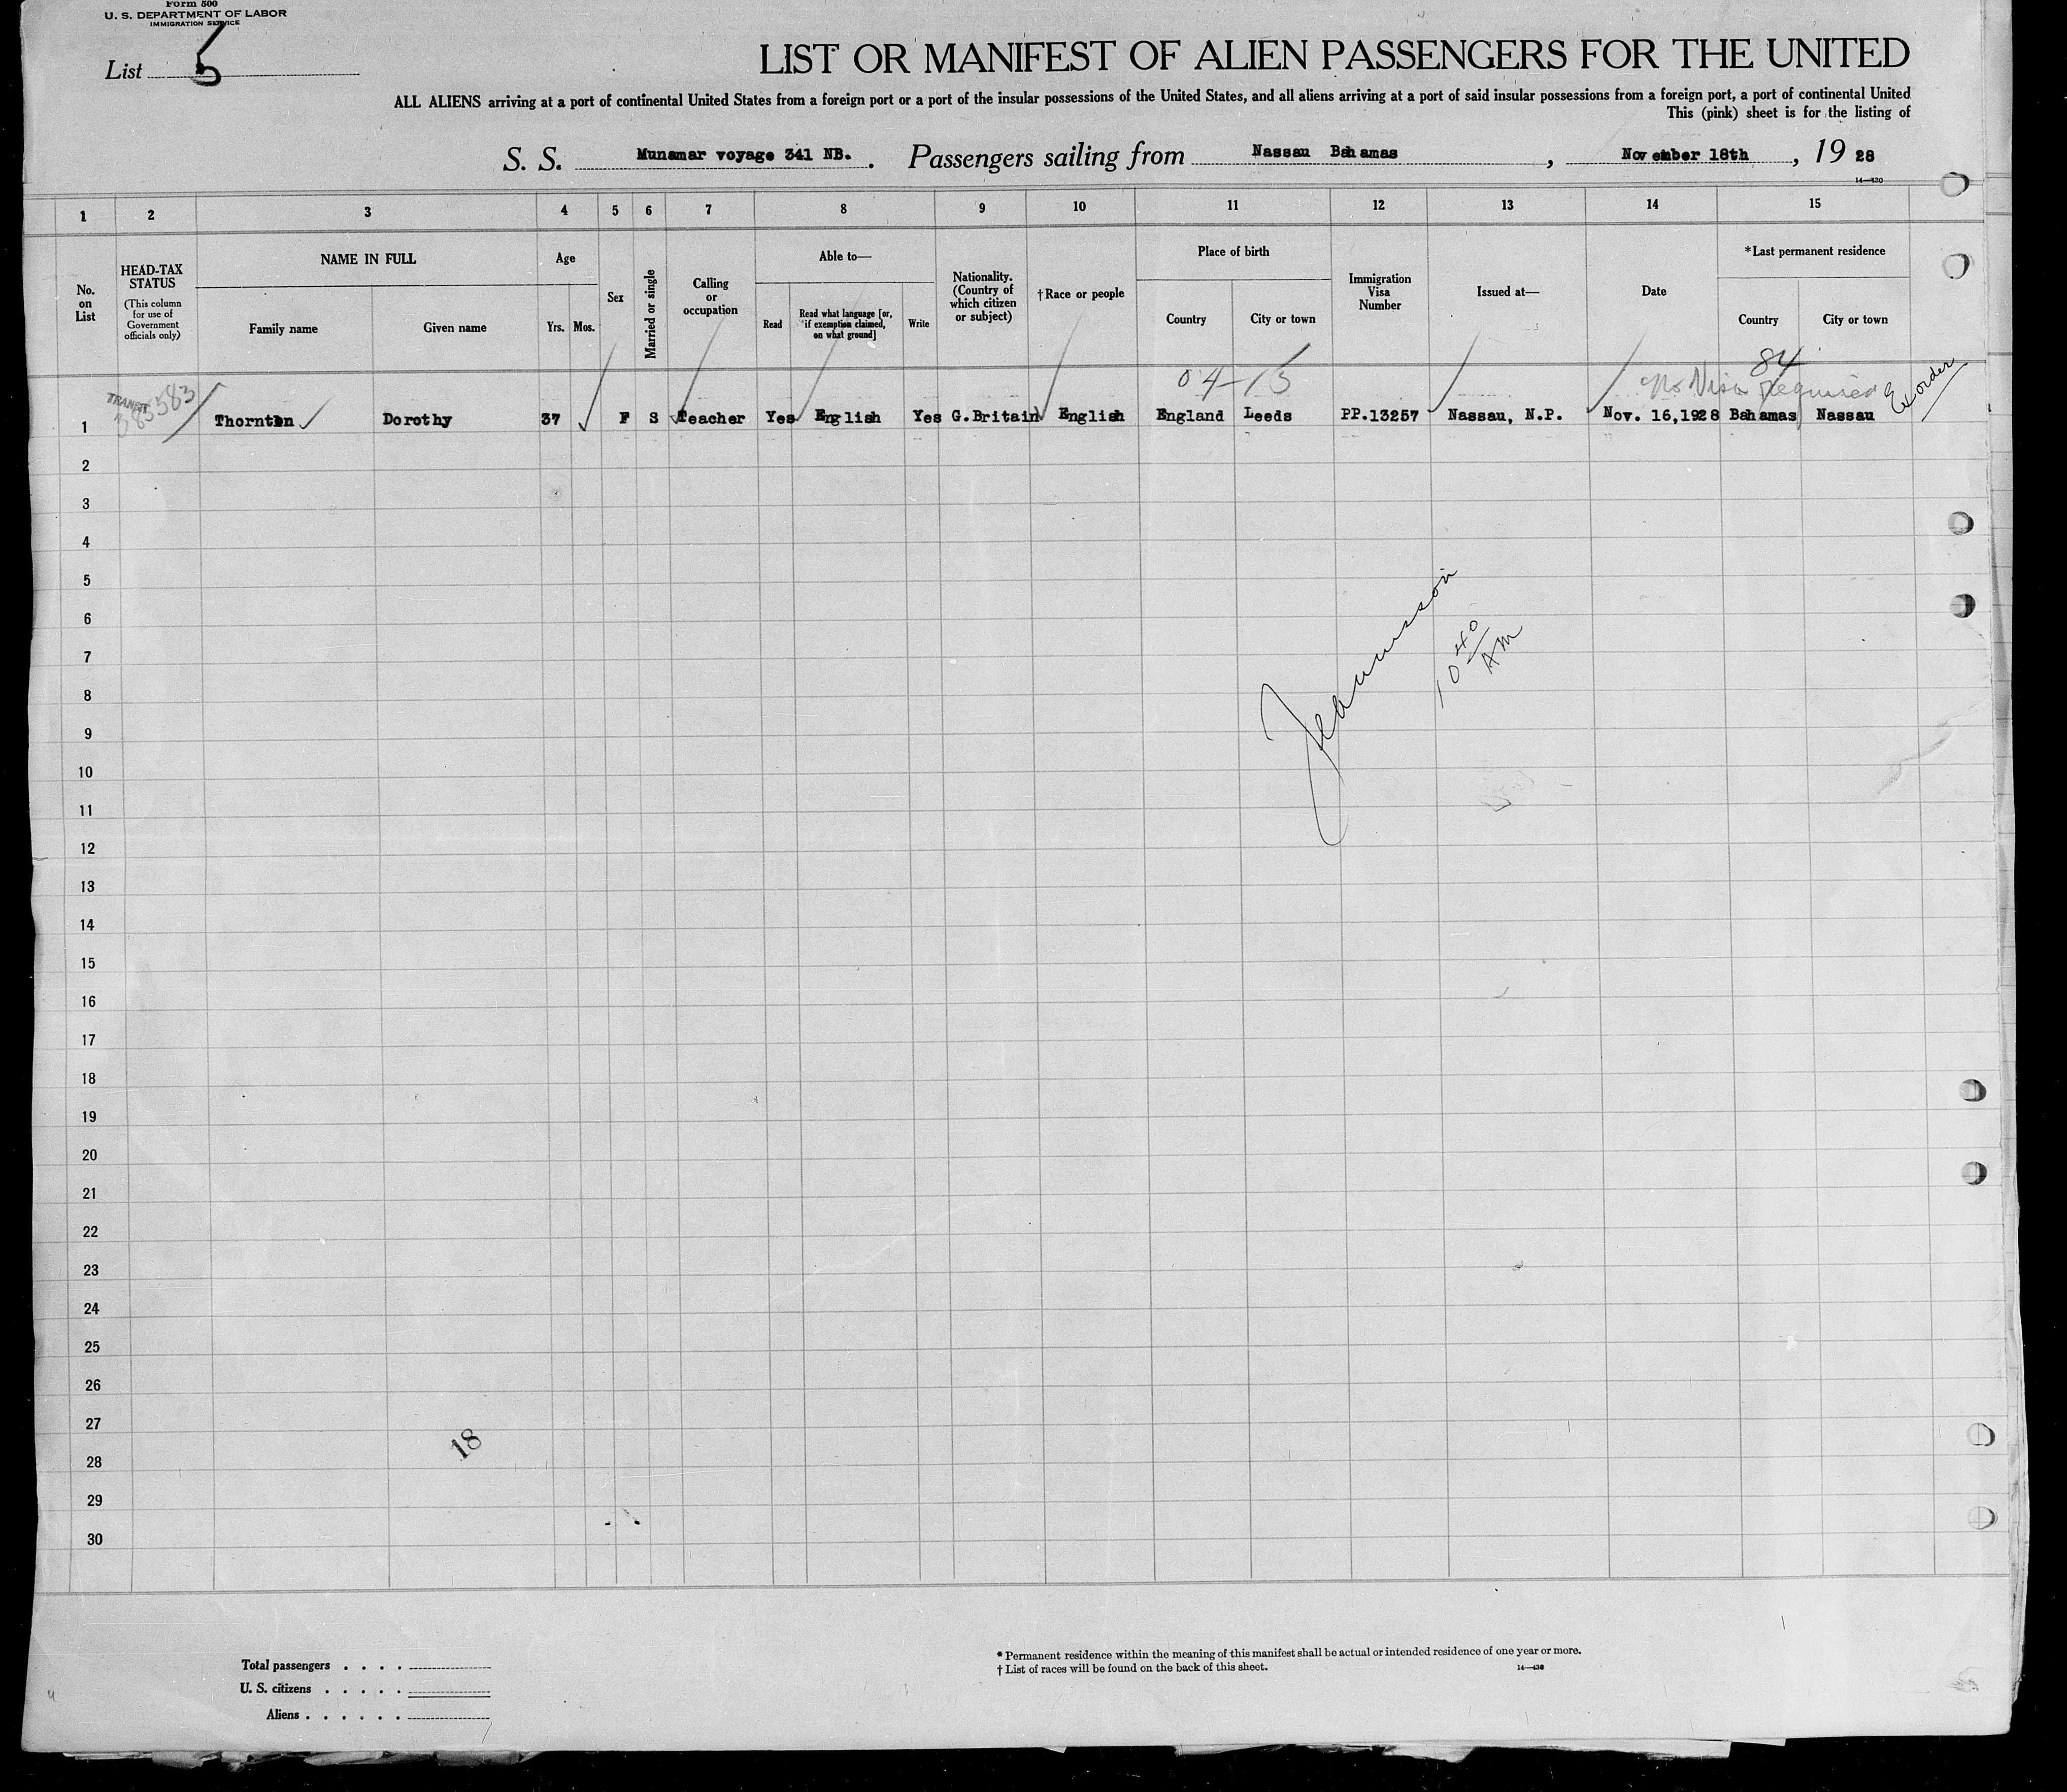 Form 500
U. S. DEPARTMENT OF LABOR
IMMIGRATION SERVICE
List 5
LIST OR MANIFEST OF ALIEN PASSENGERS FOR THE UNITED
ALL ALIENS arriving at a port of continental United States from a foreign port or a port of the insular possessions of the United States, and all aliens arriving at a port of said insular possessions from a foreign port, a port of continental United
This (pink) sheet is for the listing of
S. S. Munamar voyage 341 NB. Passengers sailing from Nassau Bahamas, November 18th, 1928
14—430
1 2 3 4 5 6 7 8 9 10 11 12 13 14 15
No. on List
HEAD-TAX STATUS
(This column for use of Government officials only)
NAME IN FULL
Family name
Given name
Age
Yrs. Mos.
Sex
Married or single
Calling or occupation
Able to—
Read
Read what language [or, if exemption claimed, on what ground]
Write
Nationality. (Country of which citizen or subject)
†Race or people
Place of birth
Country
City or town
Immigration Visa Number
Issued at—
Date
*Last permanent residence
Country
City or town
04-15
84
No Visa Required
Ex order
TRANSIT
1 Thornton Dorothy 37 F S Teacher Yes English Yes G.Britain English England Leeds PP.13257 Nassau, N.P. Nov. 16,1928 Bahamas Nassau
2
3
4
5
6
7
8
9
10
11
12
13
14
15
16
17
18
19
20
21
22
23
24
25
26
27
28
29
30
10 40 AM
18
Total passengers . . . .
U. S. citizens . . . . .
Aliens . . . . . .
* Permanent residence within the meaning of this manifest shall be actual or intended residence of one year or more.
† List of races will be found on the back of this sheet.
14—430